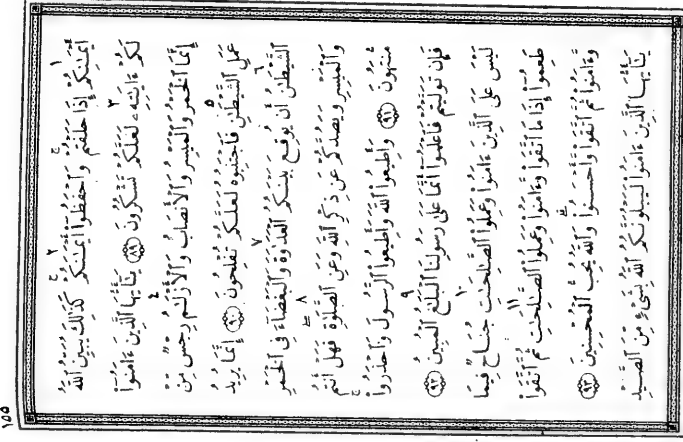 ١٥٥
أَيْمَٰنِكُمْ إِذَا حَلَفْتُمْ وَٱحْفَظُوٓا۟ أَيْمَٰنَكُمْ كَذَٰلِكَ يُبَيِّنُ ٱللَّهُ
لَكُمْ ءَايَٰتِهِۦ لَعَلَّكُمْ تَشْكُرُونَ ٨٩ يَٰٓأَيُّهَا ٱلَّذِينَ ءَامَنُوٓا۟
إِنَّمَا ٱلْخَمْرُ وَٱلْمَيْسِرُ وَٱلْأَنصَابُ وَٱلْأَزْلَٰمُ رِجْسٌ مِّنْ
عَمَلِ ٱلشَّيْطَٰنِ فَٱجْتَنِبُوهُ لَعَلَّكُمْ تُفْلِحُونَ ٩٠ إِنَّمَا يُرِيدُ
ٱلشَّيْطَٰنُ أَن يُوقِعَ بَيْنَكُمُ ٱلْعَدَٰوَةَ وَٱلْبَغْضَآءَ فِى ٱلْخَمْرِ
وَٱلْمَيْسِرِ وَيَصُدَّكُمْ عَن ذِكْرِ ٱللَّهِ وَعَنِ ٱلصَّلَوٰةِ فَهَلْ أَنتُم
مُّنتَهُونَ ٩١ وَأَطِيعُوا۟ ٱللَّهَ وَأَطِيعُوا۟ ٱلرَّسُولَ وَٱحْذَرُوا۟
فَإِن تَوَلَّيْتُمْ فَٱعْلَمُوٓا۟ أَنَّمَا عَلَىٰ رَسُولِنَا ٱلْبَلَٰغُ ٱلْمُبِينُ ٩٢
لَيْسَ عَلَى ٱلَّذِينَ ءَامَنُوا۟ وَعَمِلُوا۟ ٱلصَّٰلِحَٰتِ جُنَاحٌ فِيمَا
طَعِمُوٓا۟ إِذَا مَا ٱتَّقَوا۟ وَّءَامَنُوا۟ وَعَمِلُوا۟ ٱلصَّٰلِحَٰتِ ثُمَّ ٱتَّقَوا۟
وَّءَامَنُوا۟ ثُمَّ ٱتَّقَوا۟ وَّأَحْسَنُوا۟ وَٱللَّهُ يُحِبُّ ٱلْمُحْسِنِينَ ٩٣
يَٰٓأَيُّهَا ٱلَّذِينَ ءَامَنُوا۟ لَيَبْلُوَنَّكُمُ ٱللَّهُ بِشَىْءٍ مِّنَ ٱلصَّيْدِ